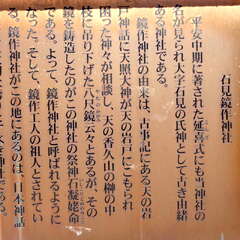 石見鏡作神社
平安中期に著された延喜式にも当神社の
名が見られ大字石見の氏神として古き由緒
ある神社です。
鏡作神社の由来は、古事記にある天の岩
戸神話に天照大神が天の岩戸にこもられ
困った神々が相談し、天の香久山の榊の中
枝に吊り下げた八尺鏡云々とあるが、その
鏡を鋳造したのがこの神社の祭神石凝姥命
である。よって、鏡作神社と呼ばれるように
なった。そして、鏡作工人の祖人とされてい
る。鏡作神社がこの地にあるのは、日本神話